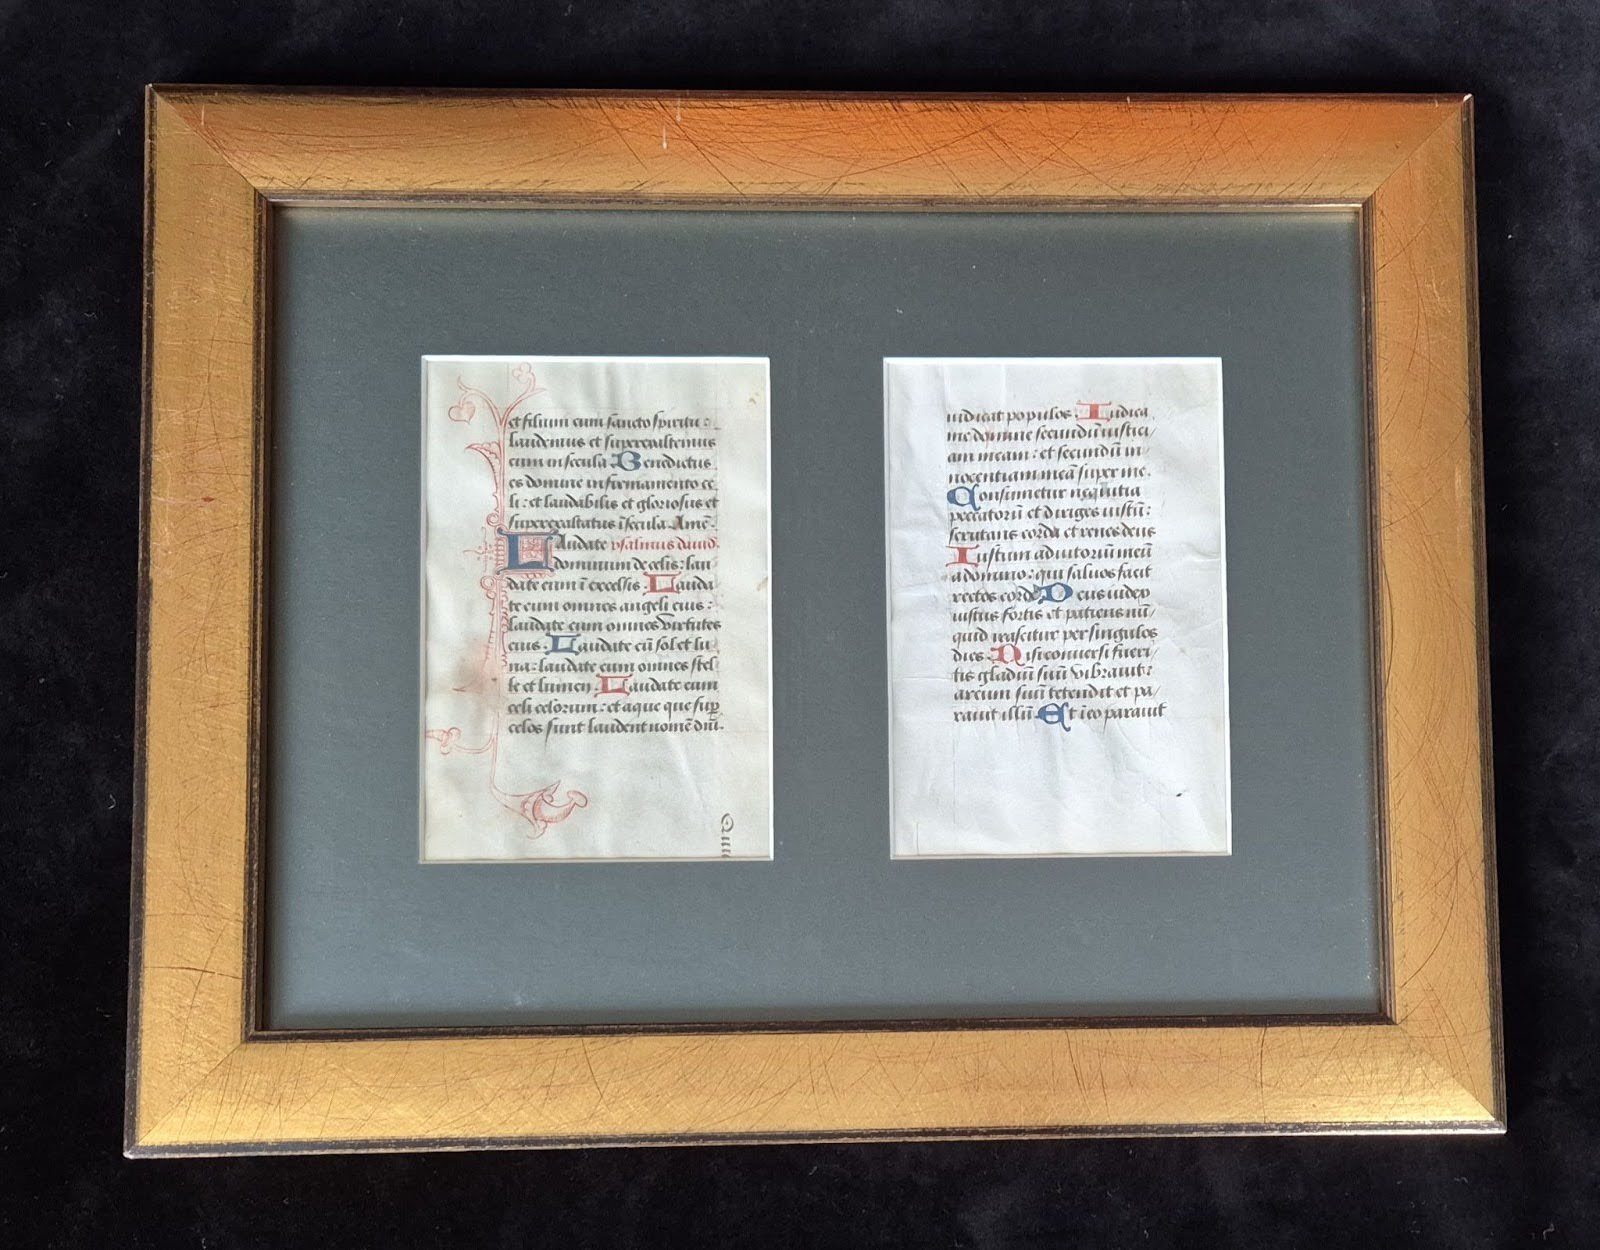 et filium cum sancto spiritu:
laudemus et superexaltemus
eum in secula Benedictus
es domine in firmamento ce
li: et laudabilis et gloriosus et
superexaltatus ī secula Amē.
LAudate psalmus dauid.
dominum de celis: lau
date eum ī excelsis. Lauda
te eum omnes angeli eius:
laudate eum omnes virtutes
eius. Laudate eū sol et lu
na: laudate eum omnes stel
le et lumen. Laudate eum
celi celorum: et aque que sup̄
celos sunt laudent nomē dn̄i.
Quu
iudicat populos. Iudica
me domine secundū iustici/
am meam: et secundū in
nocentiam meā super me.
Consumetur nequitia
peccatorū et diriges iustū:
scrutans corda et renes deus
Iustum adiutoriū meū
a domino: qui saluos facit
rectos corde Deus iudex
iustus fortis et patiens nū/
quid irascitur per singulos
dies. Nisi conuersi fueri/
tis gladiū suū vibrauit:
arcum suū tetendit et pa/
rauit illū Et ī eo parauit